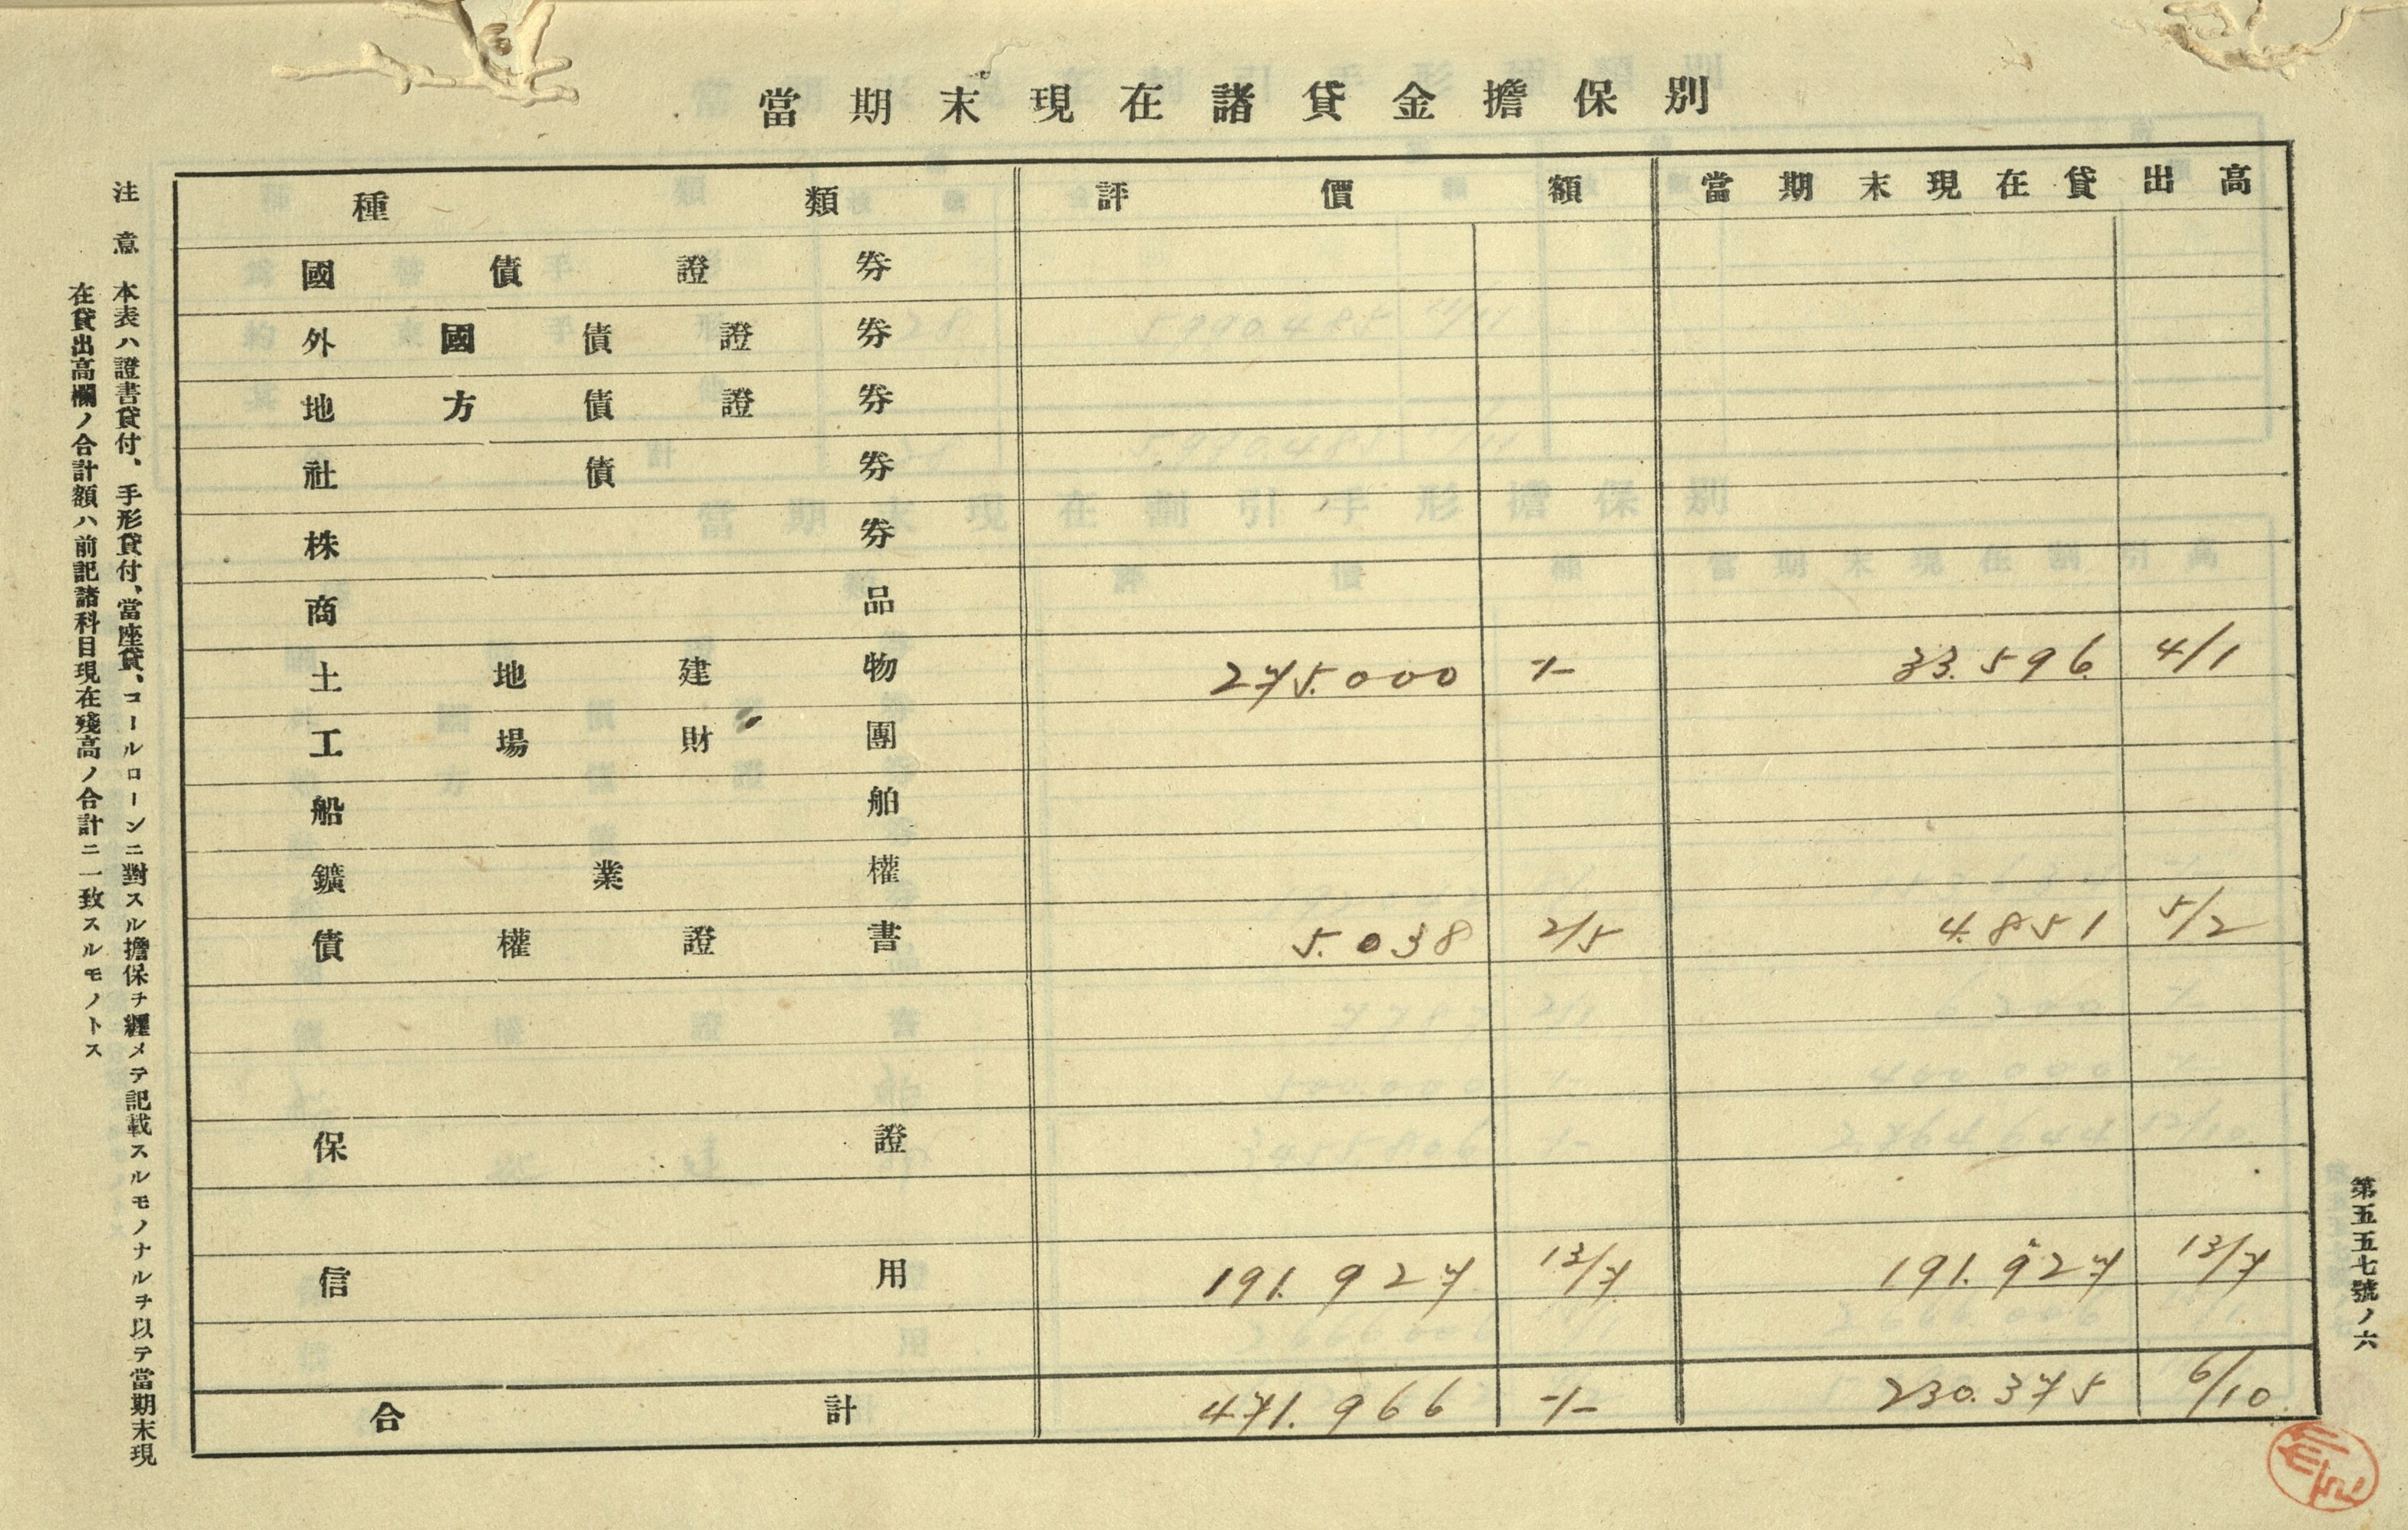 當期末現在諸貸金擔保別
種類 評價額 當期末現在貸出高
國債證券
外國債證券
地方債證券
社債券
株券
商品
土地建物 275.000 -/- 33.596 4/1
工場財團
船舶
鑛業權
債權證書 5.038 2/5 4.851 5/2
保證
信用 191.927 13/7 191.927 13/7
合計 471.966 -/- 230.375 6/10
注意 本表ハ證書貸付、手形貸付、當座貸、コールローンニ對スル擔保ヲ纒メテ記載スルモノナルヲ以テ當期末現
在貸出高欄ノ合計額ハ前記諸科目現在殘高ノ合計ニ一致スルモノトス
第五五七號ノ六